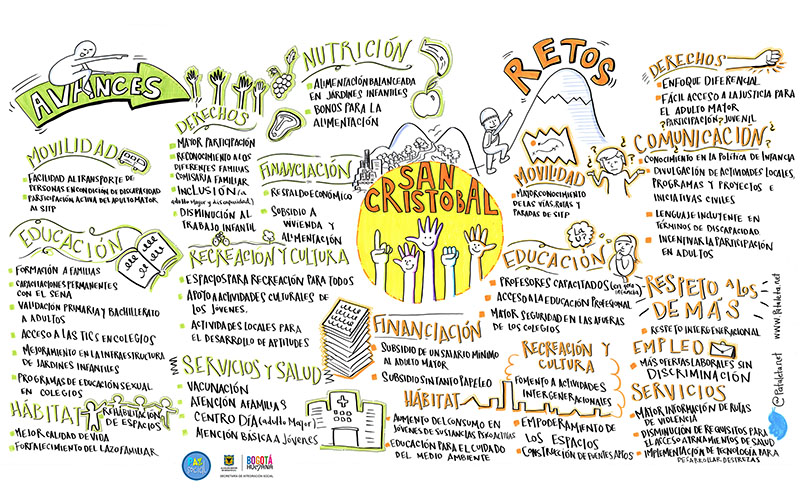 AVANCES
MOVILIDAD
FACILIDAD AL TRANSPORTE DE
PERSONAS EN CONDICIÓN DE DISCAPACIDAD
PARTICIPACIÓN ACTIVA DEL ADULTO MAYOR
AL SITP
EDUCACIÓN
FORMACIÓN A FAMILIAS
CAPACITACIONES PERMANENTES
CON EL SENA
VALIDACIÓN PRIMARIA Y BACHILLERATO
A ADULTOS
ACCESO A LAS TICS EN COLEGIOS
MEJORAMIENTO EN LA INFRAESTRUCTURA
DE JARDINES INFANTILES
PROGRAMAS DE EDUCACIÓN SEXUAL
EN COLEGIOS
HÁBITAT
REHABILITACIÓN
DE ESPACIOS
MEJOR CALIDAD DE VIDA
FORTALECIMIENTO DEL LAZO FAMILIAR
DERECHOS
MAYOR PARTICIPACIÓN
RECONOCIMIENTO A LOS
DIFERENTES FAMILIAS
COMISARIA FAMILIAR
INCLUSIÓN
(adulto Mayor y discapacidad)
DISMINUCIÓN AL
TRABAJO INFANTIL
NUTRICIÓN
ALIMENTACIÓN BALANCEADA
EN JARDINES INFANTILES
BONOS PARA LA
ALIMENTACIÓN
FINANCIACIÓN
RESPALDO ECONÓMICO
SUBSIDIO A
VIVIENDA Y
ALIMENTACIÓN
RECREACIÓN Y CULTURA
ESPACIOS PARA RECREACIÓN PARA TODOS
APOYO A ACTIVIDADES CULTURALES DE
LOS JÓVENES.
ACTIVIDADES LOCALES PARA
EL DESARROLLO DE APTITUDES
SERVICIOS Y SALUD
VACUNACIÓN
ATENCIÓN A FAMILIAS
CENTRO DÍA (adulto Mayor)
ATENCIÓN BÁSICA A JÓVENES
SAN
CRISTOBAL
RETOS
MOVILIDAD
MAYOR CONOCIMIENTO
DE LAS VÍAS, RUTAS Y
PARADAS DE SITP
EDUCACIÓN
LA
U?
PROFESORES CAPACITADOS (con primera
infancia)
ACCESO A LA EDUCACIÓN PROFESIONAL
MAYOR SEGURIDAD EN LAS AFUERAS
DE LOS COLEGIOS
FINANCIACIÓN
SUBSIDIO DE UN SALARIO MÍNIMO
AL ADULTO MAYOR
SUBSIDIO SIN TANTO PAPELEO
RECREACIÓN Y
CULTURA
FOMENTO A ACTIVIDADES
INTERGENERACIONALES
HÁBITAT
AUMENTO DEL CONSUMO EN
JÓVENES DE SUSTANCIAS PSICOACTIVAS
EDUCACIÓN PARA EL CUIDADO
DEL MEDIO AMBIENTE
EMPODERAMIENTO
DE LOS ESPACIOS
CONSTRUCCIÓN DE PUENTES
DERECHOS
ENFOQUE DIFERENCIAL
FÁCIL ACCESO A LA JUSTICIA PARA
EL ADULTO MAYOR
?PARTICIPACIÓN? JUVENIL
COMUNICACIÓN
CONOCIMIENTO EN LA POLÍTICA DE INFANCIA
DIVULGACIÓN DE ACTIVIDADES LOCALES,
PROGRAMAS Y PROYECTOS E
INICIATIVAS CIVILES
LENGUAJE INCLUYENTE EN
TÉRMINOS DE DISCAPACIDAD
INCENTIVAR LA PARTICIPACIÓN
EN ADULTOS
RESPETO A LOS
DEMÁS
RESPETO INTERGENERACIONAL
EMPLEO
MÁS OFERTAS LABORALES SIN
DISCRIMINACIÓN
SERVICIOS
MAYOR INFORMACIÓN DE RUTAS
DE VIOLENCIA
DISMINUCIÓN DE REQUISITOS PARA
EL ACCESO A TRATAMIENTOS DE SALUD
IMPLEMENTACIÓN DE TECNOLOGÍA PARA
DESARROLLAR DESTREZAS
@Pataleta.net www.Pataleta.net
BOGOTÁ
HUMANA
SECRETARÍA DE INTEGRACIÓN SOCIAL